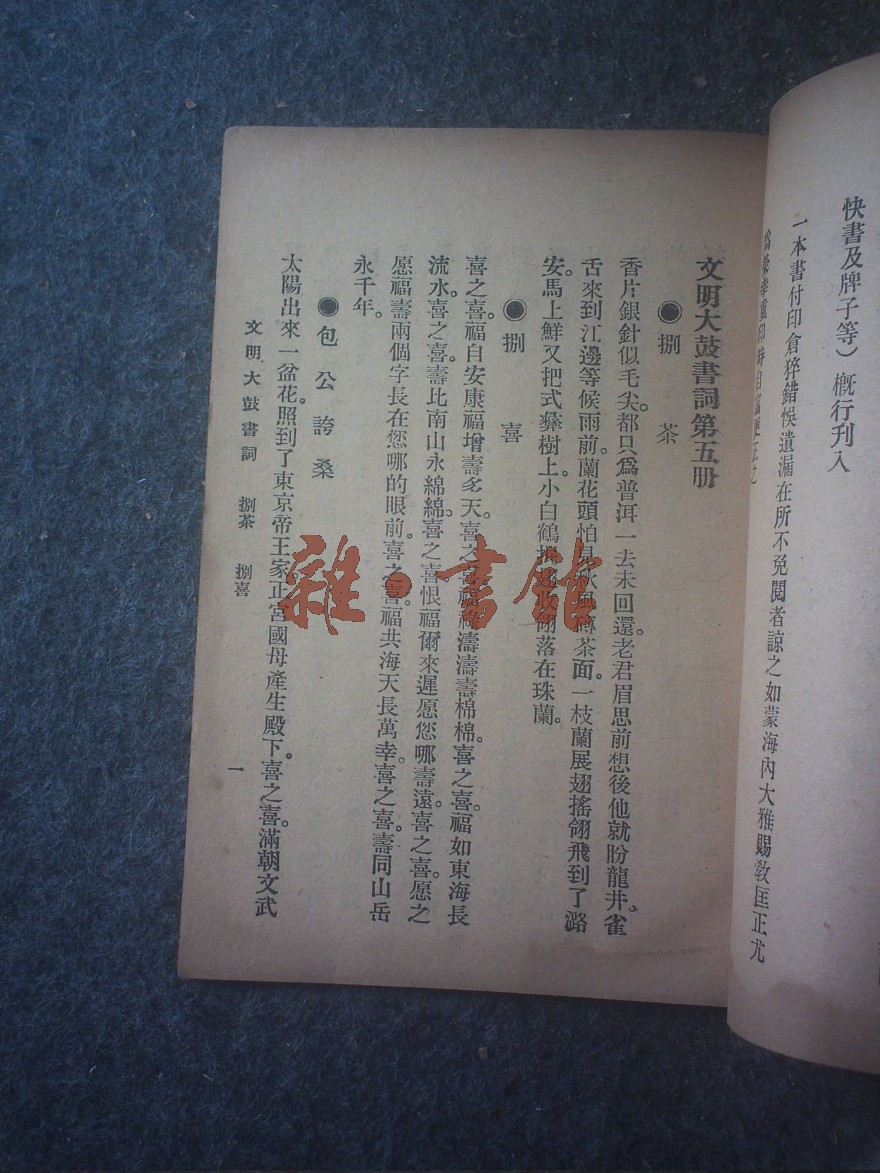 快書及牌子等）概行刊入
一本書付印倉猝錯悞遺漏在所不免閱者諒之如蒙海內大雅賜教匡正尤
文明大鼓書詞第五册
●捌茶
香片銀針似毛尖。都只爲普洱一去未回還。老君眉思前想後他就盼龍井。雀
舌來到江邊等候雨前。蘭花頭怕茶面。一枝蘭展翅搖翎飛到了潞
安。馬上鮮又把式彝樹上。小白鶴翎落在珠蘭。
●捌喜
喜之喜。福自安康福增壽多天。喜之濤濤壽棉棉。喜之喜。福如東海長
流水。喜之喜。壽比南山永綿綿。喜之喜恨福爾來遲愿您哪壽遠。喜之喜。愿之
愿福壽兩個字長在您哪的眼前。喜之喜。福共海天長萬幸。喜之喜。壽同山岳
永千年。
●包公誇桑
太陽出來一盆花。照到了東京帝王家。正宮國母產生殿下。喜之喜。滿朝文武
文明大鼓書詞 捌茶 捌喜 一
雜·書館